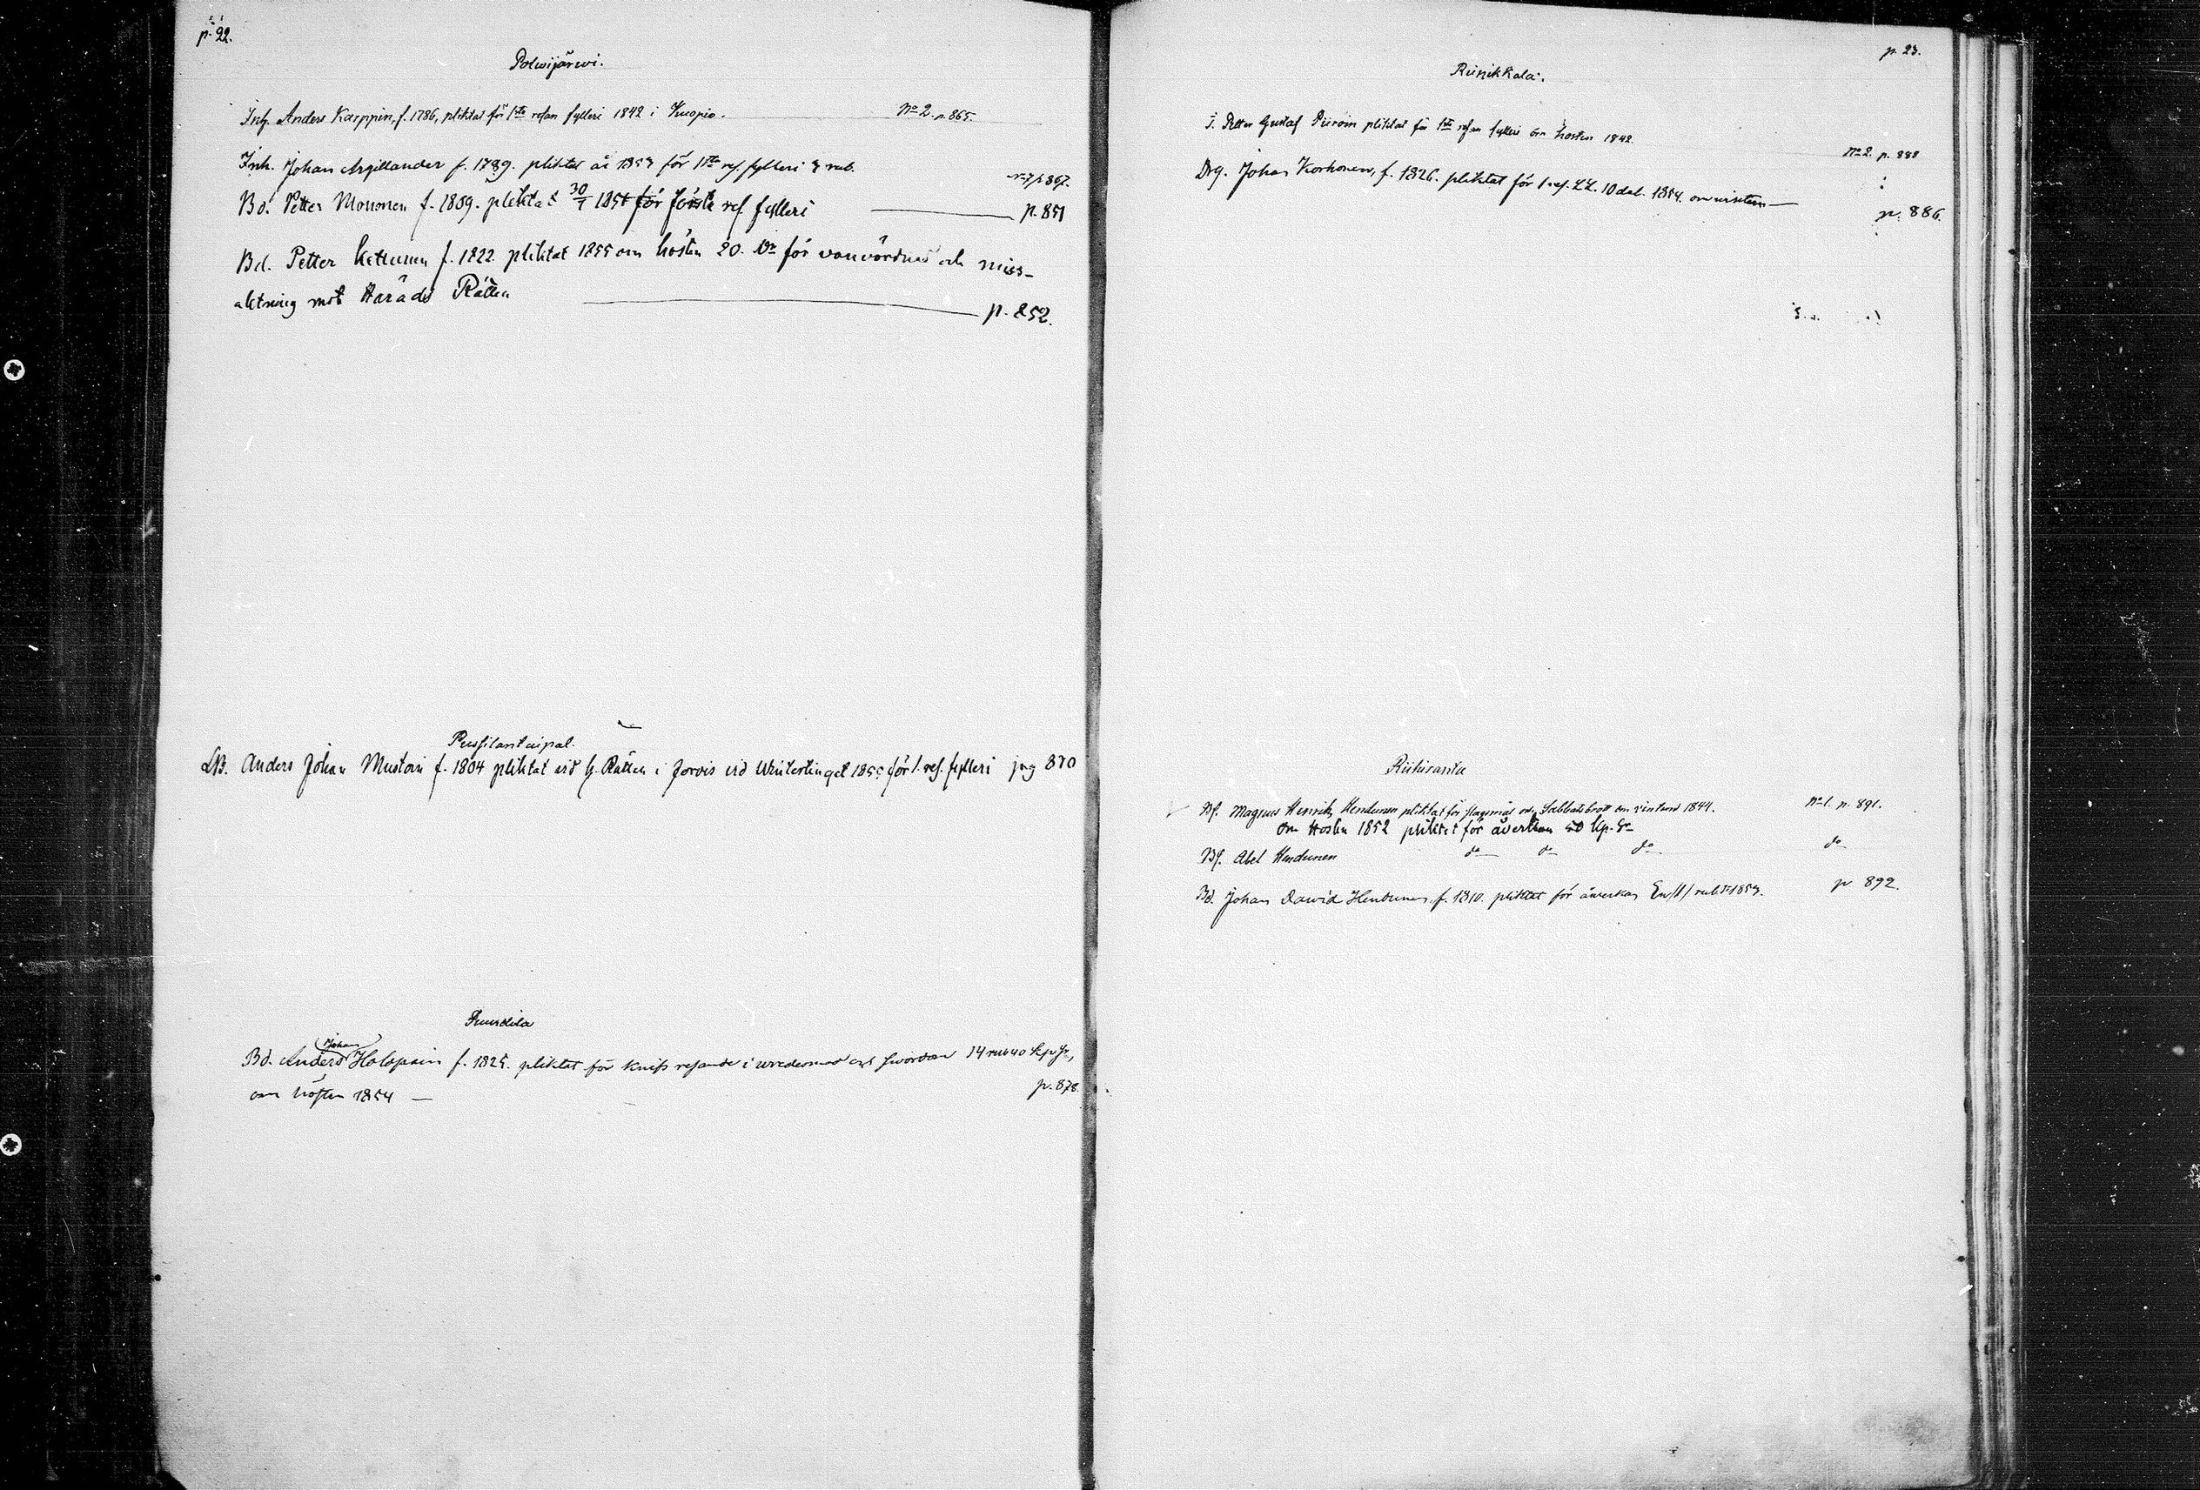 p. 22.
Polwijärwi.
Inh. Anders Karppin, f. 1786, pliktat för 1sta resan fylleri 1842 i Kuopio. No 2. p. 865.
Inh. Johan Argillander f. 1789. pliktat år 1853 för 1sta res. fylleri 3 rub. p. 867.
Bd. Petter Mononen f. 1809. pliktat 30/1 1851 för första res fylleri p. 851
Bd. Petter Kettunen f. 1822 pliktat 1855 om hösten 20. för vanvördnad och miss-
aktning mot Härads Rätten p. 852.
LB. Anders Johan Mustoin f. 1804 pliktat vid H. Rätten i Jorois vid Wintertinget 1855 för 1. res. fylleri pag 870
Puurtila
Bd. Anders Johan Holopain f. 1825. pliktat för knifs i wredesmod och swordom 14 rub 40 kp Sr,
om hösten 1854 — p. 878.
p. 23.
Riinikkala.
I. Petter Gustaf Piiroin pliktat för 1sta resan fylleri om hösten 1842. No 2. p. 888
Drg. Johan Korhonen, f. 1826. pliktat för 1 res. 10 dal. 1854. om wintern — p. 886.
Riihiranta
Bf. Magnus Henrik Hendunen pliktat för slagsmål och Sabbatsbrott om vintern 1844. No 1. p. 891.
Om Hösten 1852 pliktat för åverkan 50 kp. Sr
Bf. Abel Hendunen do do do do
Bd. Johan Dawid Hendunen f. 1810. pliktat för åwerkan En /1/ rub. Sr 1853. p 892.